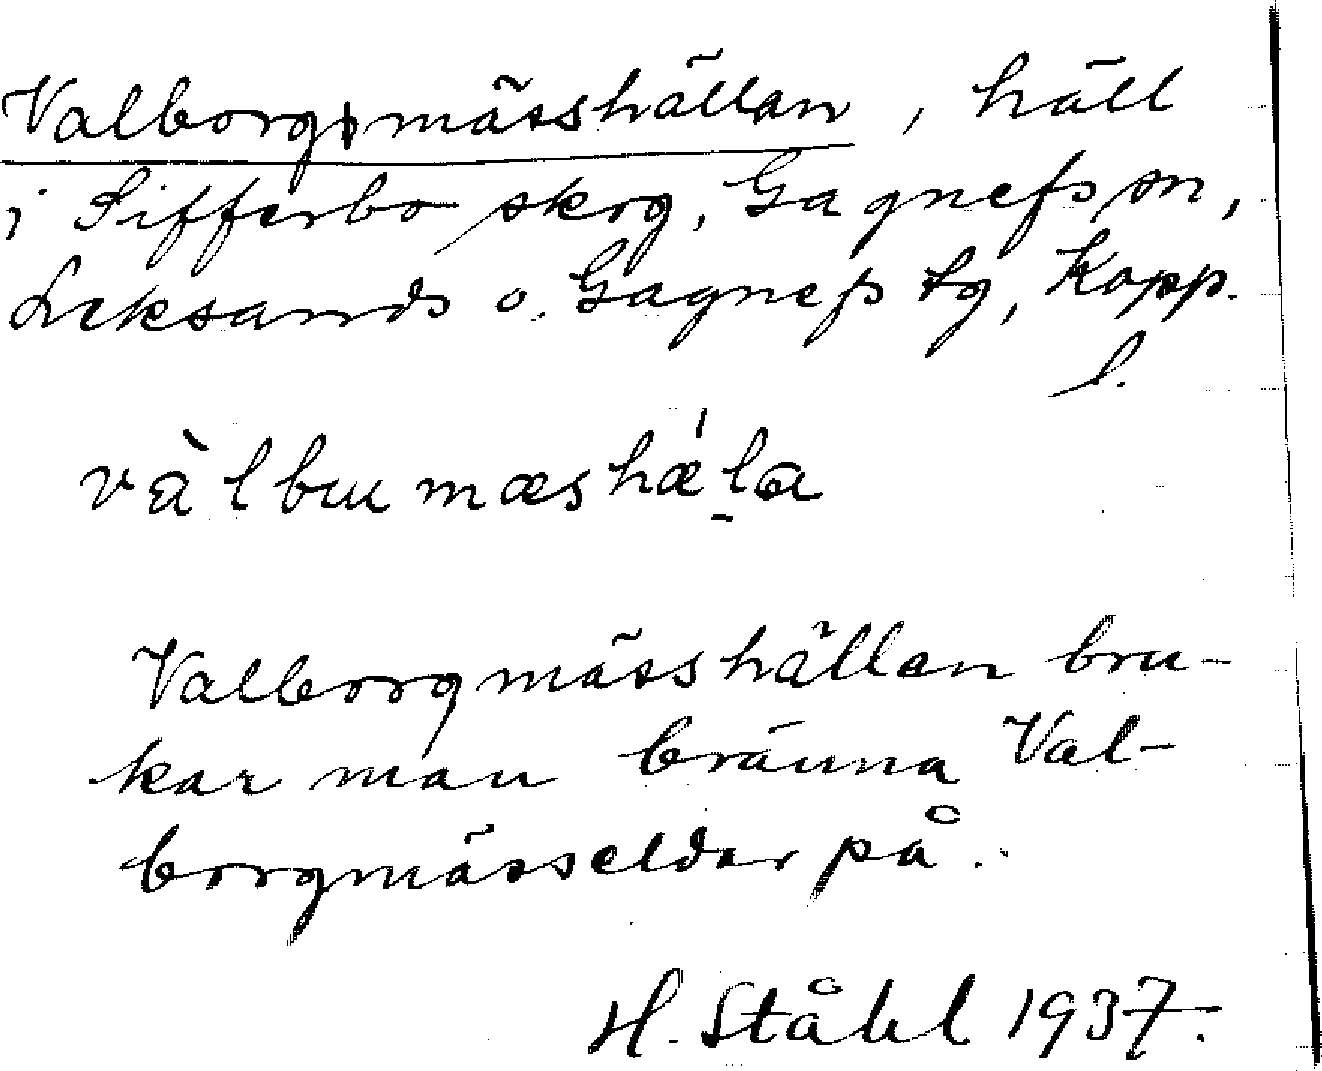 Valborgsmässhällan, häll
i Sifferbo skog, Gagnefs sn,
Leksands o. Gagnefs tg, Kopp.
l.
vàlbɯmæshæ̍la
Valborgmässhällan bru-
kar man bränna Val-
borgmässeldar på.
H. Ståhl 1937.